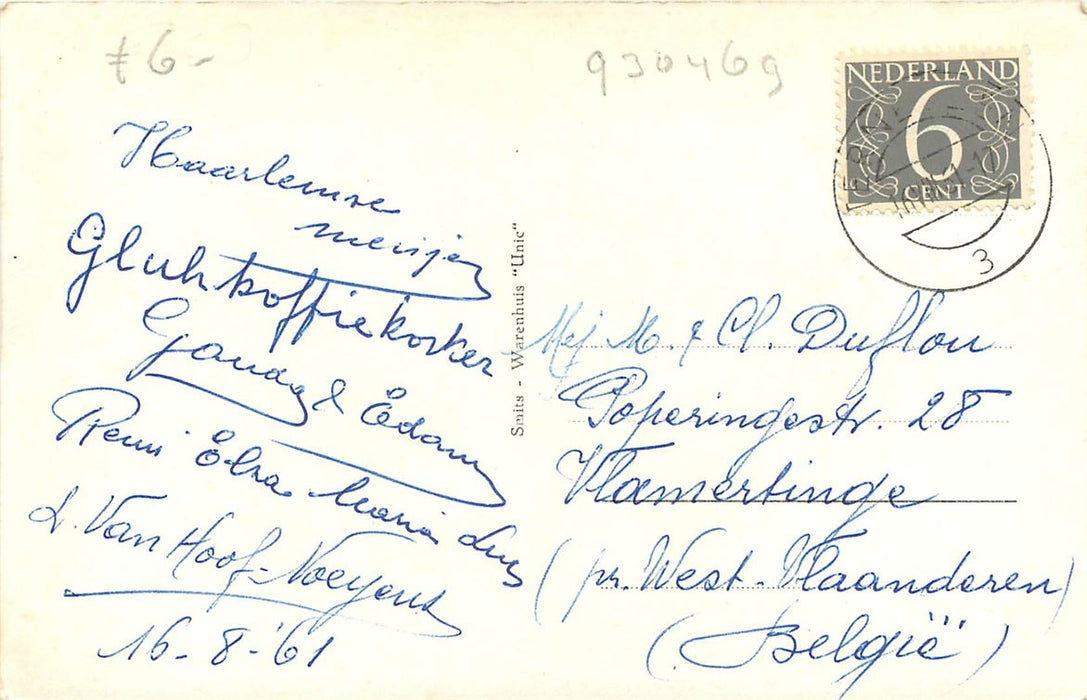 £6-
930469
NEDERLAND
6
CENT
3
Haarlemse
meisjes
Gluhkoffiekorker
Gouda & Edam
Remi Elza Maria Luis
L. Van Hoof-Noeyens
16-8-'61
Smits - Warenhuis "Unic"
Mej M. & Cl. Duflou
Poperingestr. 28
Vlamertinge
(pr. West-Vlaanderen)
(België)